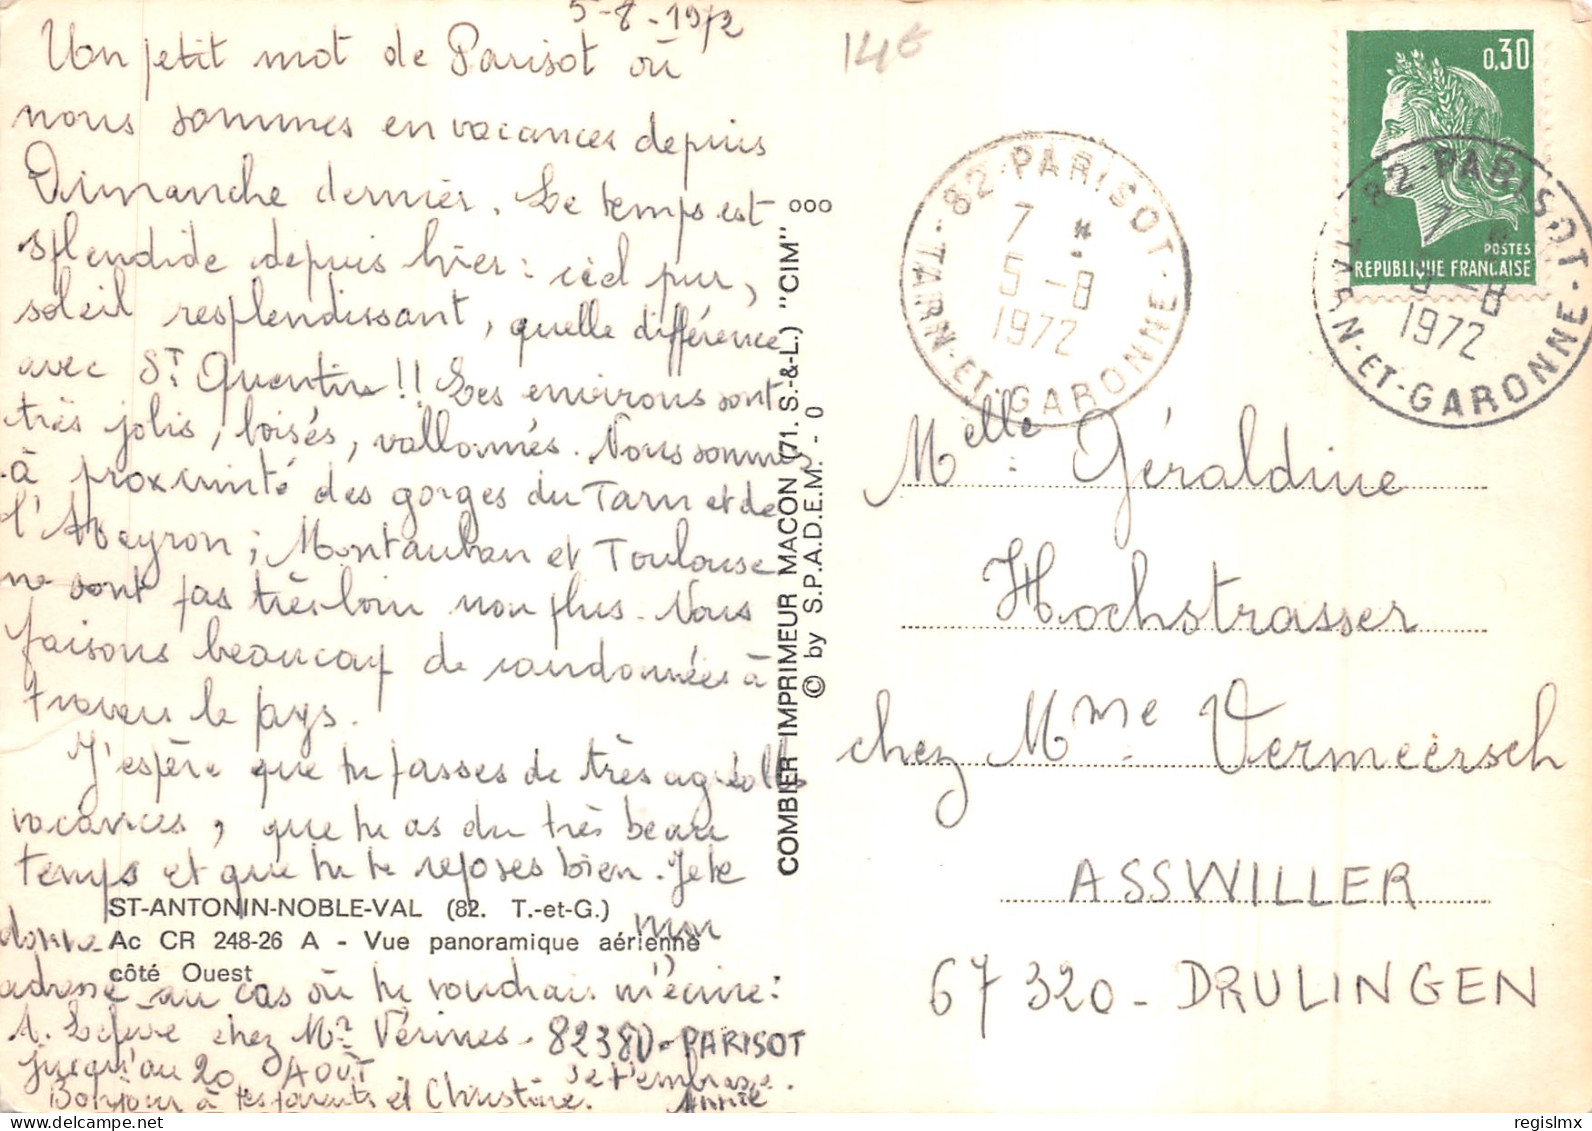 5-8-1972
Un petit mot de Parisot où
nous sommes en vacances depuis
Dimanche dernier. Le temps est
splendide depuis hier : ciel pur,
soleil resplendissant, quelle différence
avec St Quentin !! Les environs sont
très jolis, boisés, vallonnés. Nous sommes
à proximité des gorges du Tarn et de
l'Aveyron ; Montauban et Toulouse
ne sont pas très loin non plus. Nous
faisons beaucoup de randonnées à
travers le pays.
J'espère que tu passes de très agréables
vacances, que tu as du très beau
temps et que tu te reposes bien. Je te
donne mon
adresse au cas où tu voudrais m'écrire :
A. Lefèvre chez Mr Vérines. 82380-PARISOT
jusqu'au 20 AOÛT. Je t'embrasse.
Bonjour à tes parents et Christine. Annie
ST-ANTONIN-NOBLE-VAL (82. T.-et-G.)
Ac CR 248-26 A - Vue panoramique aérienne
côté Ouest
COMBIER IMPRIMEUR MACON (71. S.-&-L.) "CIM" ooo
© by S.P.A.D.E.M. - 0
14€
0,30
POSTES
REPUBLIQUE FRANÇAISE
82-PARISOT
7 *
5-8
1972
TARN-ET-GARONNE
82-PARISOT
7 *
5-8
1972
TARN-ET-GARONNE
Melle Géraldine
Hochstrasser
chez Mme Vermeersch
ASSWILLER
67320-DRULINGEN
regislmx